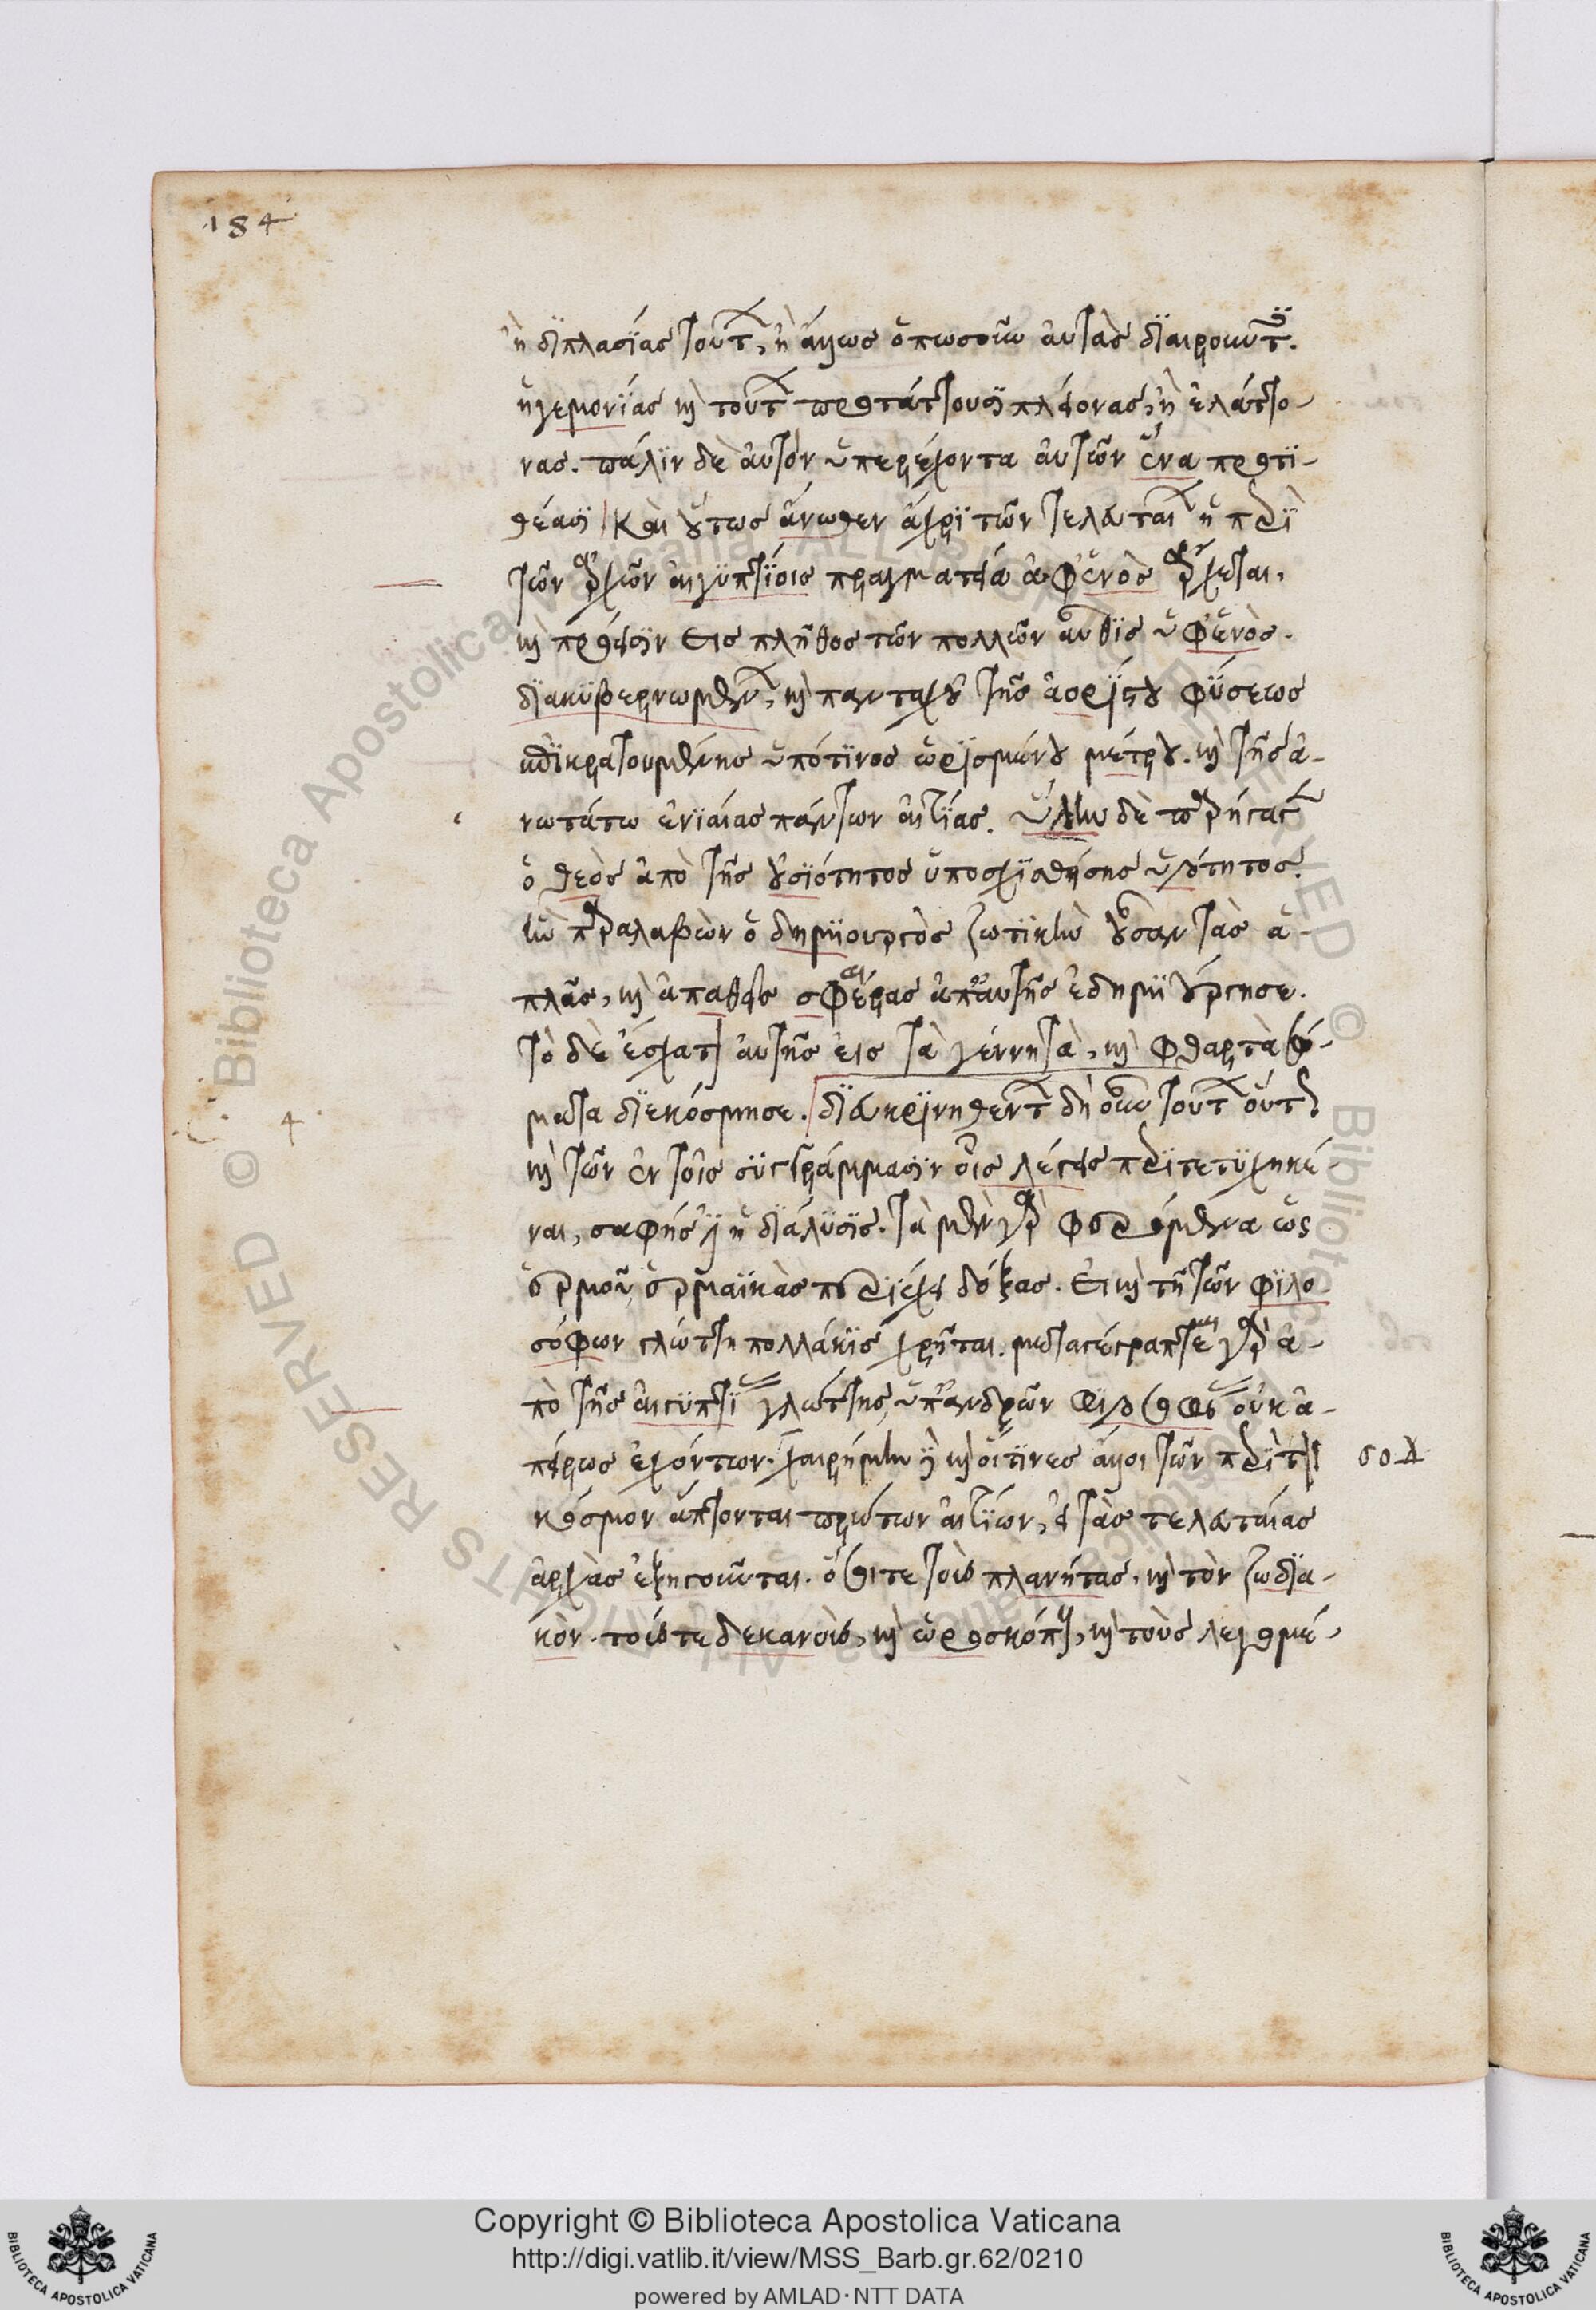 184
ἢ διπλασίας τούτων, ἢ ἄλλως ὁπωσοῦν αὐτὰς διαιροῦντες.
ἡγεμονίας καὶ τούτων προτάττουσι πλείονας, ἢ ἐλάττο-
νας. πάλιν δὲ αὐτὸν ὑπερέχοντα αὐτῶν ἕνα προτι-
θέασι. Καὶ οὕτως ἄνωθεν ἄχρι τῶν τελευταίων ἡ περὶ
τῶν ἀρχῶν αἰγυπτίοις πραγματεία ἀφ' ἑνὸς ἄρχεται,
καὶ πρόεισιν εἰς πλῆθος τῶν πολλῶν αὖθις ὑφ' ἑνὸς
διακυβερνωμένων, καὶ πανταχοῦ τῆς ἀορίστου φύσεως
ἐπικρατουμένης ὑπό τινος ὡρισμένου μέτρου. καὶ τῆς ἀ-
νωτάτω ἑνιαίας πάντων αἰτίας. ὕλην δὲ παρήγαγεν
ὁ θεὸς ἀπὸ τῆς οὐσιότητος ὑποσχισθείσης ὑλότητος.
ἣν παραλαβὼν ὁ δημιουργὸς ζωτικὴν οὖσαν τὰς ἁ-
πλᾶς, καὶ ἀπαθεῖς σφαίρας ἀπ' αὐτῆς ἐδημιούργησε.
τὸ δὲ ἔσχατον αὐτῆς εἰς τὰ γεννητὰ, καὶ φθαρτὰ σώ-
ματα διεκόσμησε. διευκρινηθέντων δὴ οὖν τούτων οὕτως
καὶ τῶν ἐν τοῖς συγγράμμασιν οἷς λέγεις περιτετυχηκέ-
ναι, σαφής ἐστιν ἡ διάλυσις. τὰ μὲν γὰρ φερόμενα ὡς
ἑρμοῦ, ἑρμαϊκὰς περιέχει δόξας. Εἰ καὶ τῇ τῶν φιλο
σόφων γλώττῃ πολλάκις χρῆται. μεταγέγραπται γὰρ ἀ-
πὸ τῆς αἰγυπτίας γλώττης, ὑπ' ἀνδρῶν φιλοσοφίας οὐκ ἀ-
πείρως ἐχόντων. χαιρήμων δὲ καὶ οἵτινες ἄλλοι τῶν περὶ τὸν
κόσμον ἅπτονται πρώτων αἰτίων, εἰ τὰς τελευταίας
ἀρχὰς ἐξηγοῦνται. ὅσοι τε τοὺς πλανήτας, καὶ τὸν ζωδια-
κὸν. τούς τε δεκανοὺς, καὶ ὡροσκόπους, καὶ τοὺς λεγομέ-
Copyright © Biblioteca Apostolica Vaticana
http://digi.vatlib.it/view/MSS_Barb.gr.62/0210
powered by AMLAD·NTT DATA